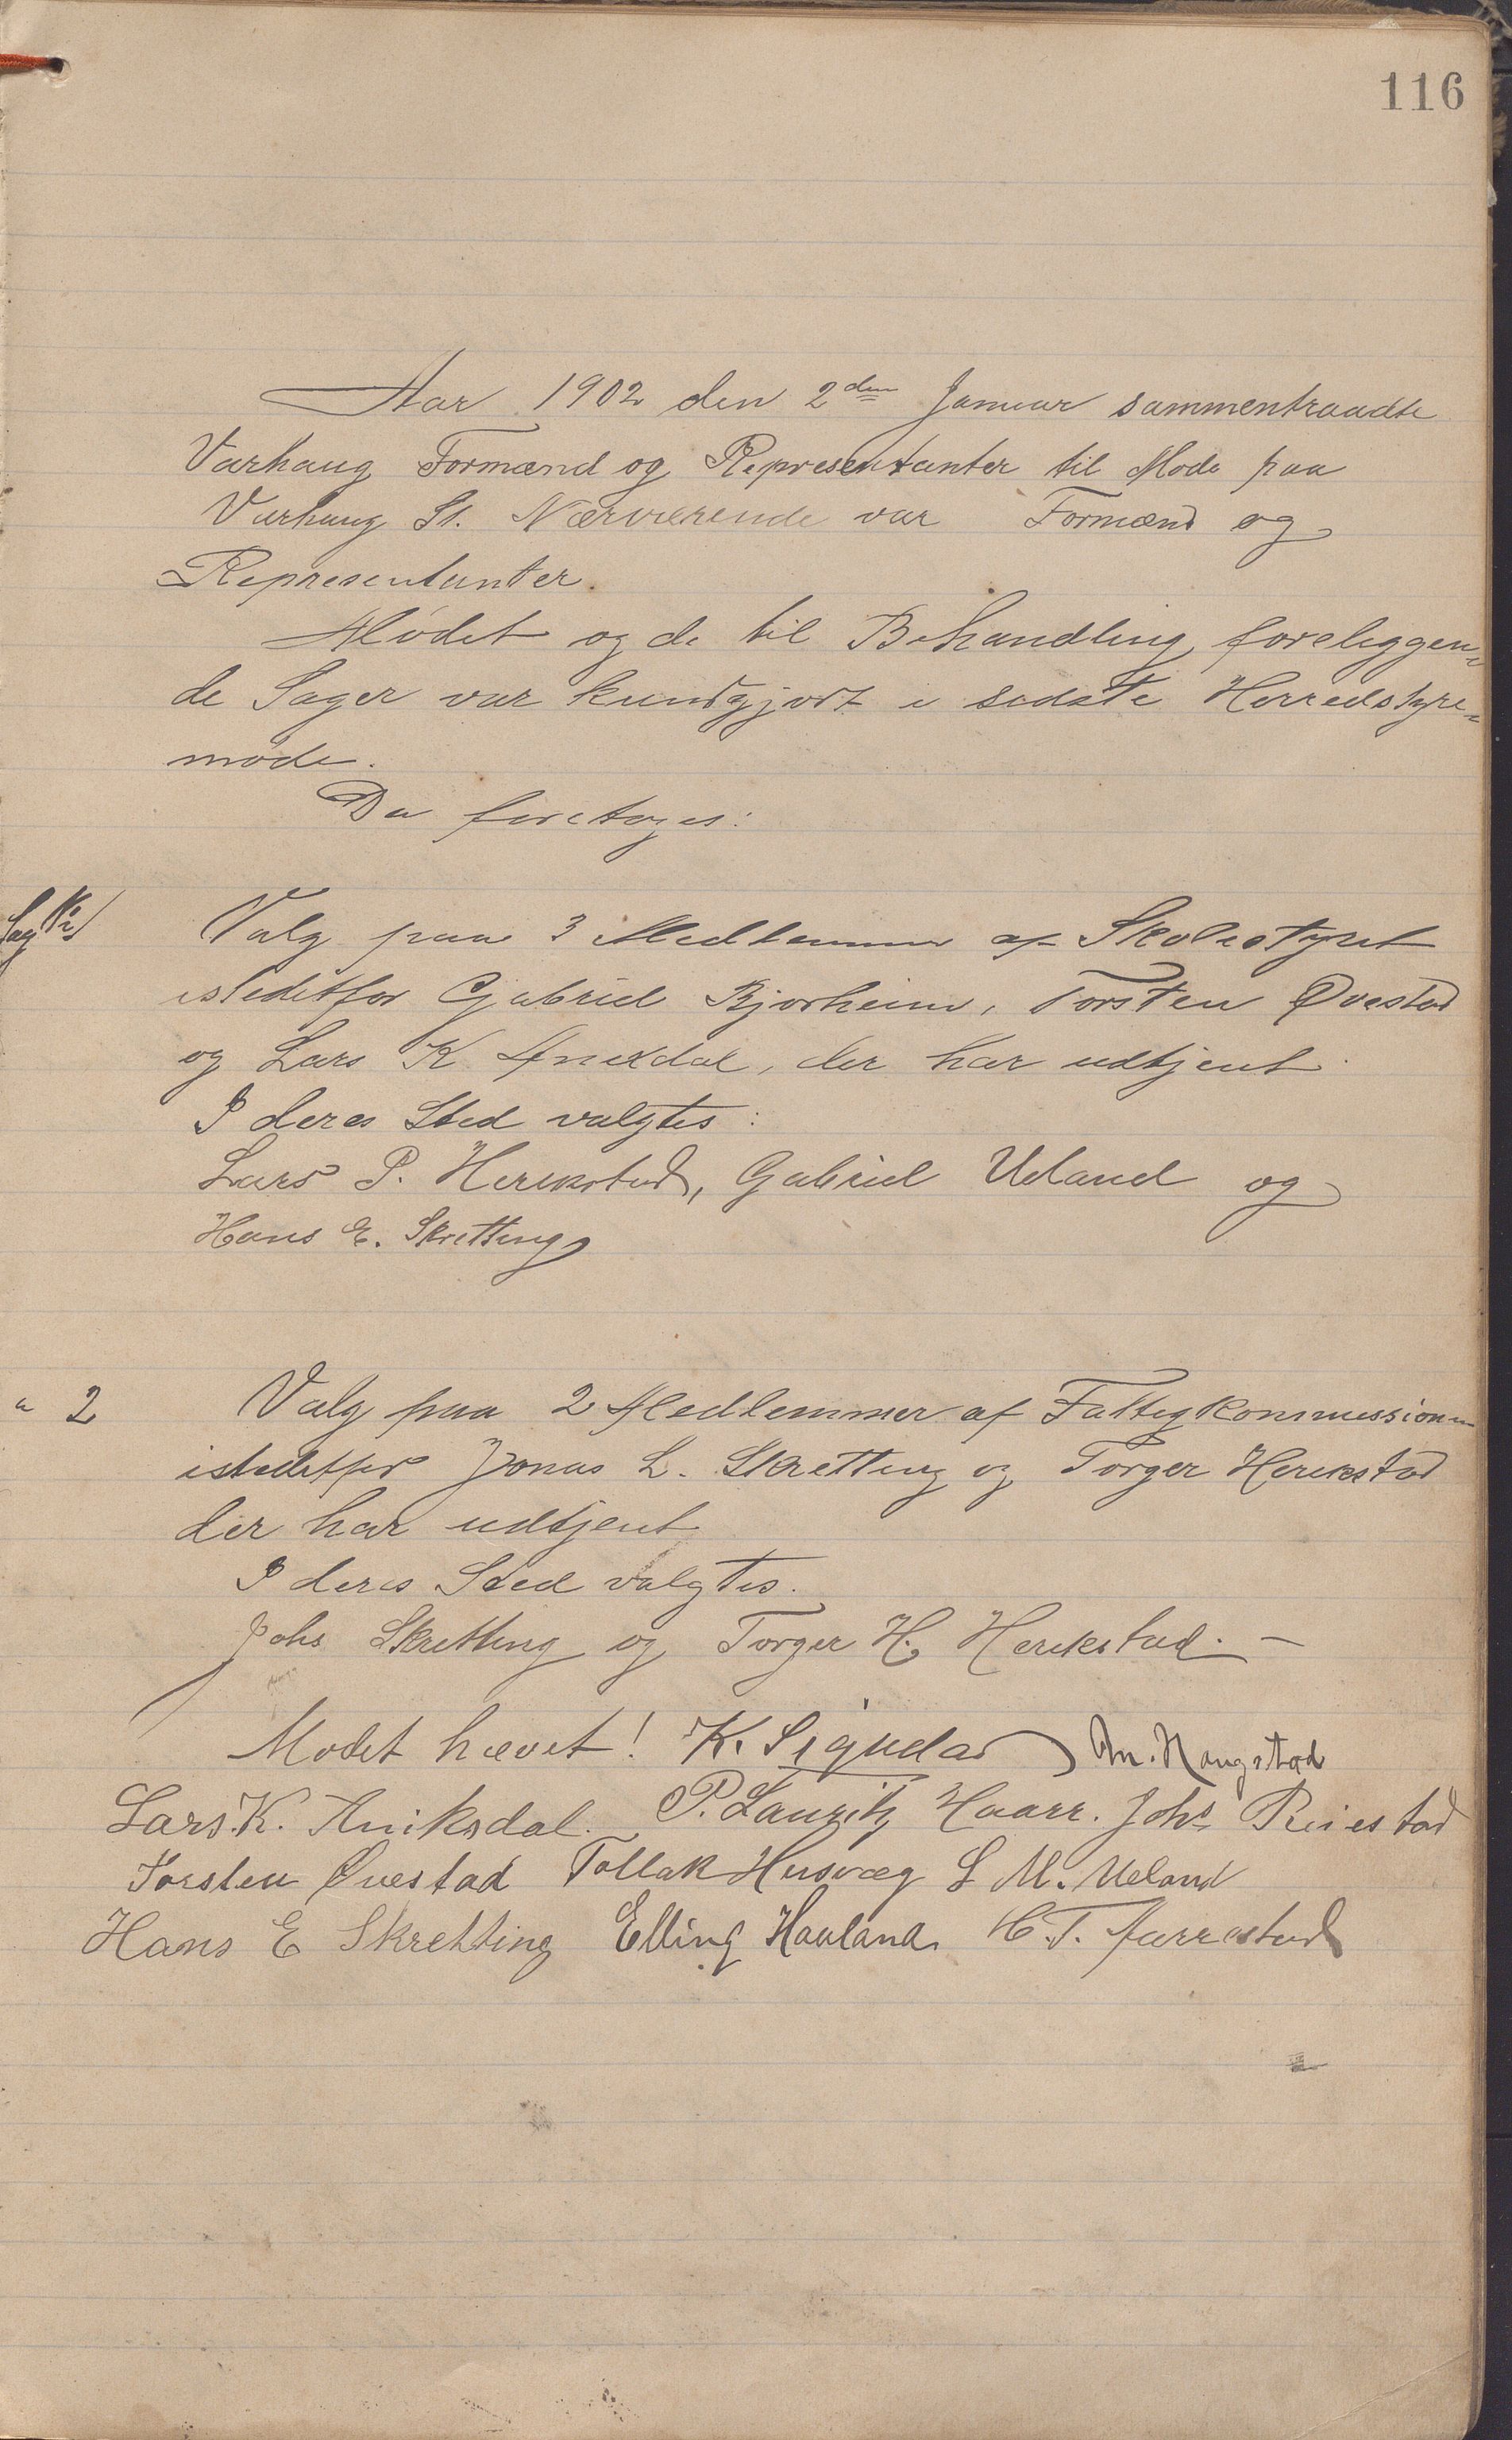 116
Aar 1902 den 2den Januar sammentraadte
Varhaug Formænd og Representanter til Møde paa
Varhaug St. Nærværende var Formænd og
Representanter.
Mødet og de til Behandling foreliggen-
de Sager var kundgjort i sidste Herredstyre-
møde.
Da foretoges:
Sag No 1 Valg paa 3 Medlemmer af Skolestyret
istedetfor Gabriel Bjorheim, Torsten Øvestad
og Lars K Aniksdal, der har udtjent.
I deres Sted valgtes:
Lars P. Herikstad, Gabriel Ueland og
Hans E. Skretting
" 2 Valg paa 2 Medlemmer af Fattigkommissionen
istedetfor Jonas L. Skretting og Torger Herikstad
der har udtjent
I deres Sted valgtes.
Johs Skretting og Torger H. Herikstad. —
Mødet hævet! K. Sigvedas Haugstad
Lars K. Aniksdal. P. Lauritz Haarr. Johs Reiestad
Torsten Øvestad Tollak Husvæg L M. Ueland
Hans E Skretting Elling Haaland. H. T. Aarrestad